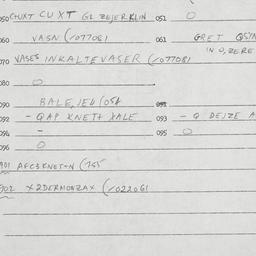 050 CHXT CU XT GL ZEJERKLIN 051 0
060 VASN (1077081 061 GRET QSYN
IN 0, ZERE
070 VASES INKALTEVASER (1077081
080 0
090 BALE, JEU (054 091
092 - QAP KNETH XALE 093 - Q DEJZE A
094 - 095 0
096 0
901 AFC3KNET-N (755
902 X2DERMONZAX (1022061